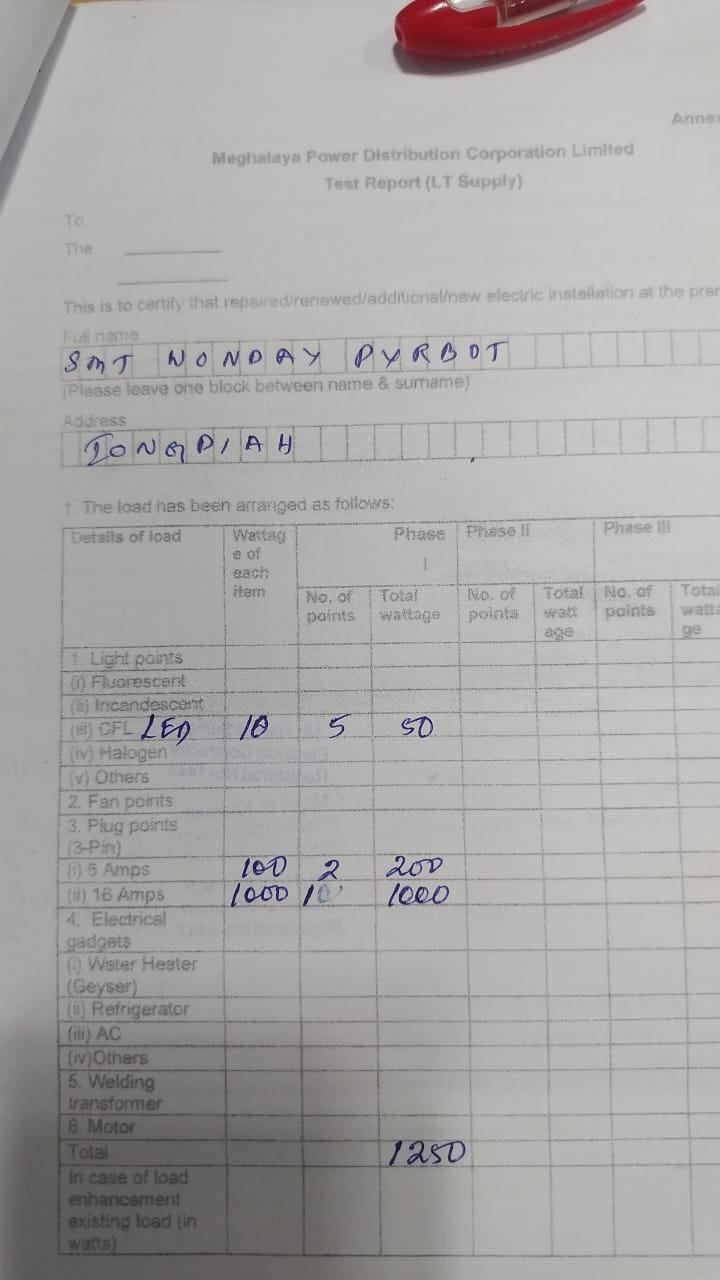 Annex
Meghalaya Power Distribution Corporation Limited
Test Report (LT Supply)
To
The
This is to certify that repaired/renewed/additional/new electric installation at the prem
Full name
SMT WONDAY PYRBOT
(Please leave one block between name & surname)
Address
IONGPIAH
1. The load has been arranged as follows:
Details of load Wattag e of each item Phase I Phase II Phase III
No. of points Total wattage No. of points Total watt age No. of points Total watta ge
1. Light points
(i) Fluorescent
(ii) Incandescent
(iii) CFL LED 10 5 50
(iv) Halogen
(v) Others
2. Fan points
3. Plug points
(3-Pin)
(i) 5 Amps 100 2 200
(ii) 16 Amps 1000 1 1000
4. Electrical
gadgets
(i) Water Heater
(Geyser)
(ii) Refrigerator
(iii) AC
(iv)Others
5. Welding
transformer
6. Motor
Total 1250
In case of load
enhancement
existing load (in
watts)